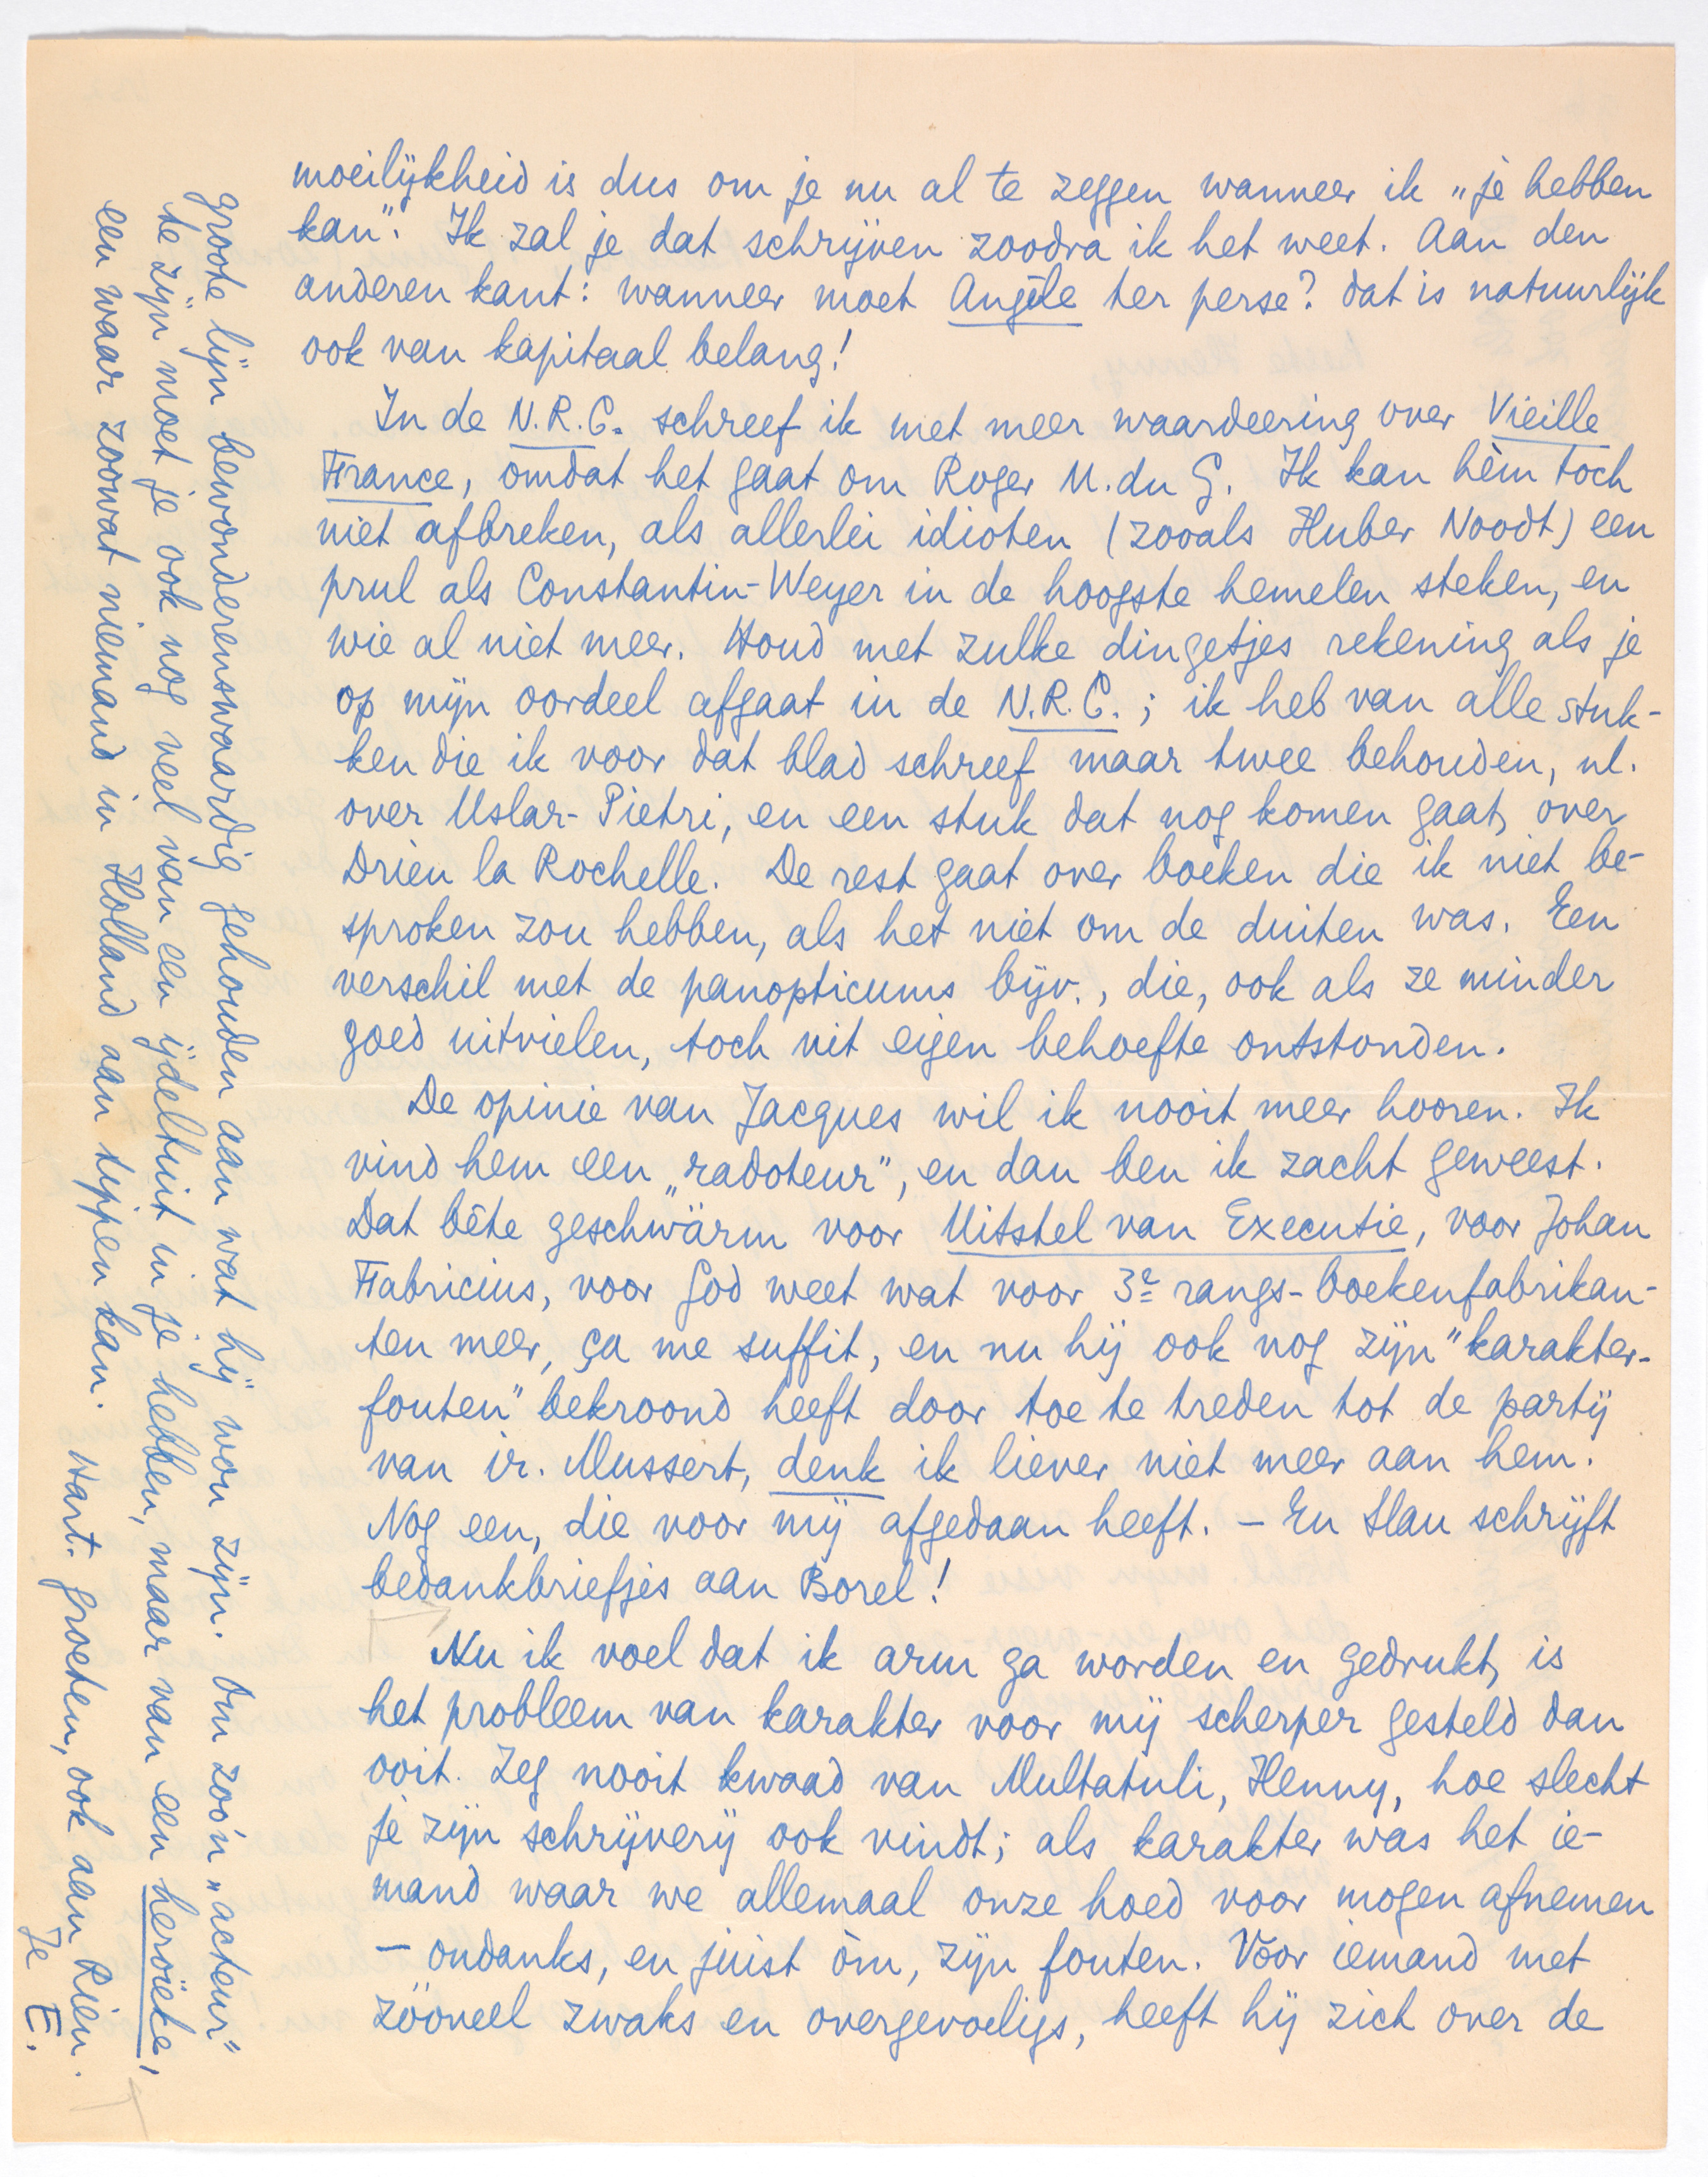 moeilijkheid is dus om je nu al te zeggen wanneer ik „je hebben
kan". Ik zal je dat schrijven zoodra ik het weet. Aan den
anderen kant: wanneer moet Angèle ter perse? dat is natuurlijk
ook van kapitaal belang!
In de N.R.C. schreef ik met meer waardeering over Vieille
France, omdat het gaat om Roger M. du G. Ik kan hèm toch
niet afbreken, als allerlei idioten (zooals Huber Noodt) een
prul als Constantin-Weyer in de hoogste hemelen steken, en
wie al niet meer. Houd met zulke dingetjes rekening als je
op mijn oordeel afgaat in de N.R.C.; ik heb van alle stuk-
ken die ik voor dat blad schreef maar twee behouden, nl.
over Uslar-Pietri, en een stuk dat nog komen gaat, over
Drieu la Rochelle. De rest gaat over boeken die ik niet be-
sproken zou hebben, als het niet om de duiten was. Een
verschil met de panopticums bijv., die, ook als ze minder
goed uitvielen, toch uit eigen behoefte ontstonden.
De opinie van Jacques wil ik nooit meer hooren. Ik
vind hem een „radoteur", en dan ben ik zacht geweest.
Dat bête geschwärm voor Uitstel van Executie, voor Johan
Fabricius, voor God weet wat voor 3e rangs-boekenfabrikan-
ten meer, ça me suffit, en nu hij ook nog zijn "karakter-
fouten" bekroond heeft door toe te treden tot de partij
van ir. Mussert, denk ik liever niet meer aan hem.
Nog een, die voor mij afgedaan heeft. – En Slau schrijft
bedankbriefjes aan Borel!
Nu ik voel dat ik arm ga worden en gedrukt, is
het probleem van karakter voor mij scherper gesteld dan
ooit. Zeg nooit kwaad van Multatuli, Henny, hoe slecht
je zijn schrijverij ook vindt; als karakter was het ie-
mand waar we allemaal onze hoed voor mogen afnemen
– ondanks, en juist òm, zijn fouten. Voor iemand met
zóóveel zwaks en overgevoeligs, heeft hij zich over de
groote lijn bewonderenswaardig gehouden aan wat hij wou zijn. Om zoo'n „acteur"
te zijn moet je ook nog veel van een ijdeltuit in je hebben, maar van een heroïeke,
een waar zoowat niemand in Holland aan tippen kan. Hart. groeten, ook aan Rien.
Je E.